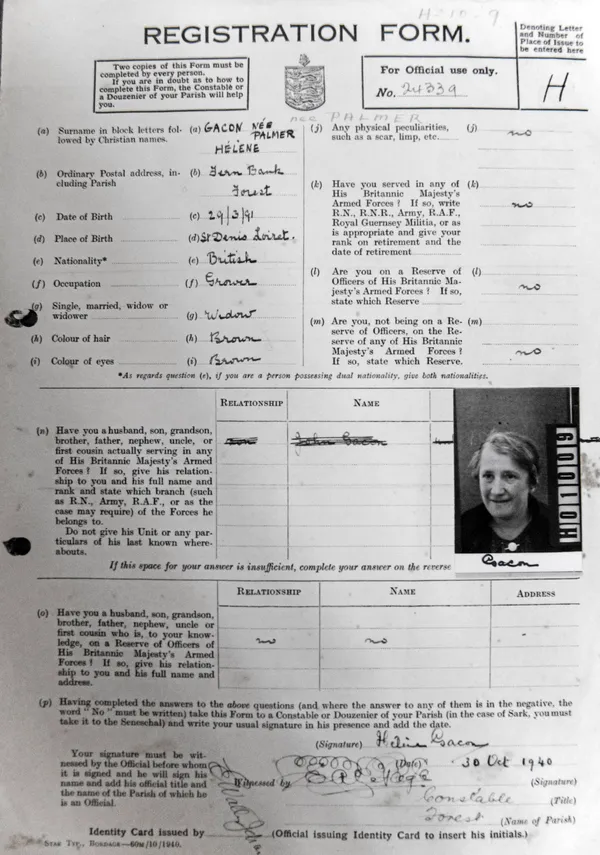 H-10-9
REGISTRATION FORM.
Denoting Letter
and Number of
Place of Issue to
be entered here
H
Two copies of this Form must be
completed by every person.
If you are in doubt as to how to
complete this Form, the Constable or
a Douzenier of your Parish will help
you.
For Official use only.
No. 24339
née PALMER
(a) Surname in block letters fol-
lowed by Christian names.
(a) GACON NÉE
PALMER
HÉLÈNE
(b) Ordinary Postal address, in-
cluding Parish
(b) Fern Bank
Forest
(c) Date of Birth (c) 29/3/91
(d) Place of Birth (d) St Denis Loiret.
(e) Nationality* (e) British
(f) Occupation (f) Grower
(g) Single, married, widow or
widower (g) Widow
(h) Colour of hair (h) Brown
(i) Colour of eyes (i) Brown
(j) Any physical peculiarities, (j)
such as a scar, limp, etc. no
(k) Have you served in any of (k)
His Britannic Majesty's
Armed Forces? If so, write
R.N., R.N.R., Army, R.A.F.,
Royal Guernsey Militia, or as
is appropriate and give your
rank on retirement and the
date of retirement
no
(l) Are you on a Reserve of (l)
Officers of His Britannic Ma-
jesty's Armed Forces? If so,
state which Reserve
no
(m) Are you, not being on a Re- (m)
serve of Officers, on the Re-
serve of any of His Britannic
Majesty's Armed Forces?
If so, state which Reserve.
no
*As regards question (e), if you are a person possessing dual nationality, give both nationalities.
RELATIONSHIP NAME
(n) Have you a husband, son, grandson,
brother, father, nephew, uncle, or
first cousin actually serving in any
of His Britannic Majesty's Armed
Forces? If so, give his relation-
ship to you and his full name and
rank and state which branch (such
as R.N., Army, R.A.F., or as the
case may require) of the Forces he
belongs to.
Do not give his Unit or any par-
ticulars of his last known where-
abouts.
son John Gacon
HO1009
Gacon
If this space for your answer is insufficient, complete your answer on the reverse
RELATIONSHIP NAME ADDRESS
(o) Have you a husband, son, grandson,
brother, father, nephew, uncle or
first cousin who is, to your know-
ledge, on a Reserve of Officers of
His Britannic Majesty's Armed
Forces? If so, give his relation-
ship to you and his full name and
address.
no no -
(p) Having completed the answers to the above questions (and where the answer to any of them is in the negative, the
word "No" must be written) take this Form to a Constable or Douzenier of your Parish (in the case of Sark, you must
take it to the Seneschal) and write your usual signature in his presence and add the date.
(Signature) Hélène Gacon
Your signature must be wit-
nessed by the Official before whom
it is signed and he will sign his
name and add his official title and
the name of the Parish of which he
is an Official.
(Date) 30 Oct 1940
Witnessed by (Signature)
Constable (Title)
Forest (Name of Parish)
Identity Card issued by (Official issuing Identity Card to insert his initials.)
STAR TYP., BORDAGE—60M/10/1940.